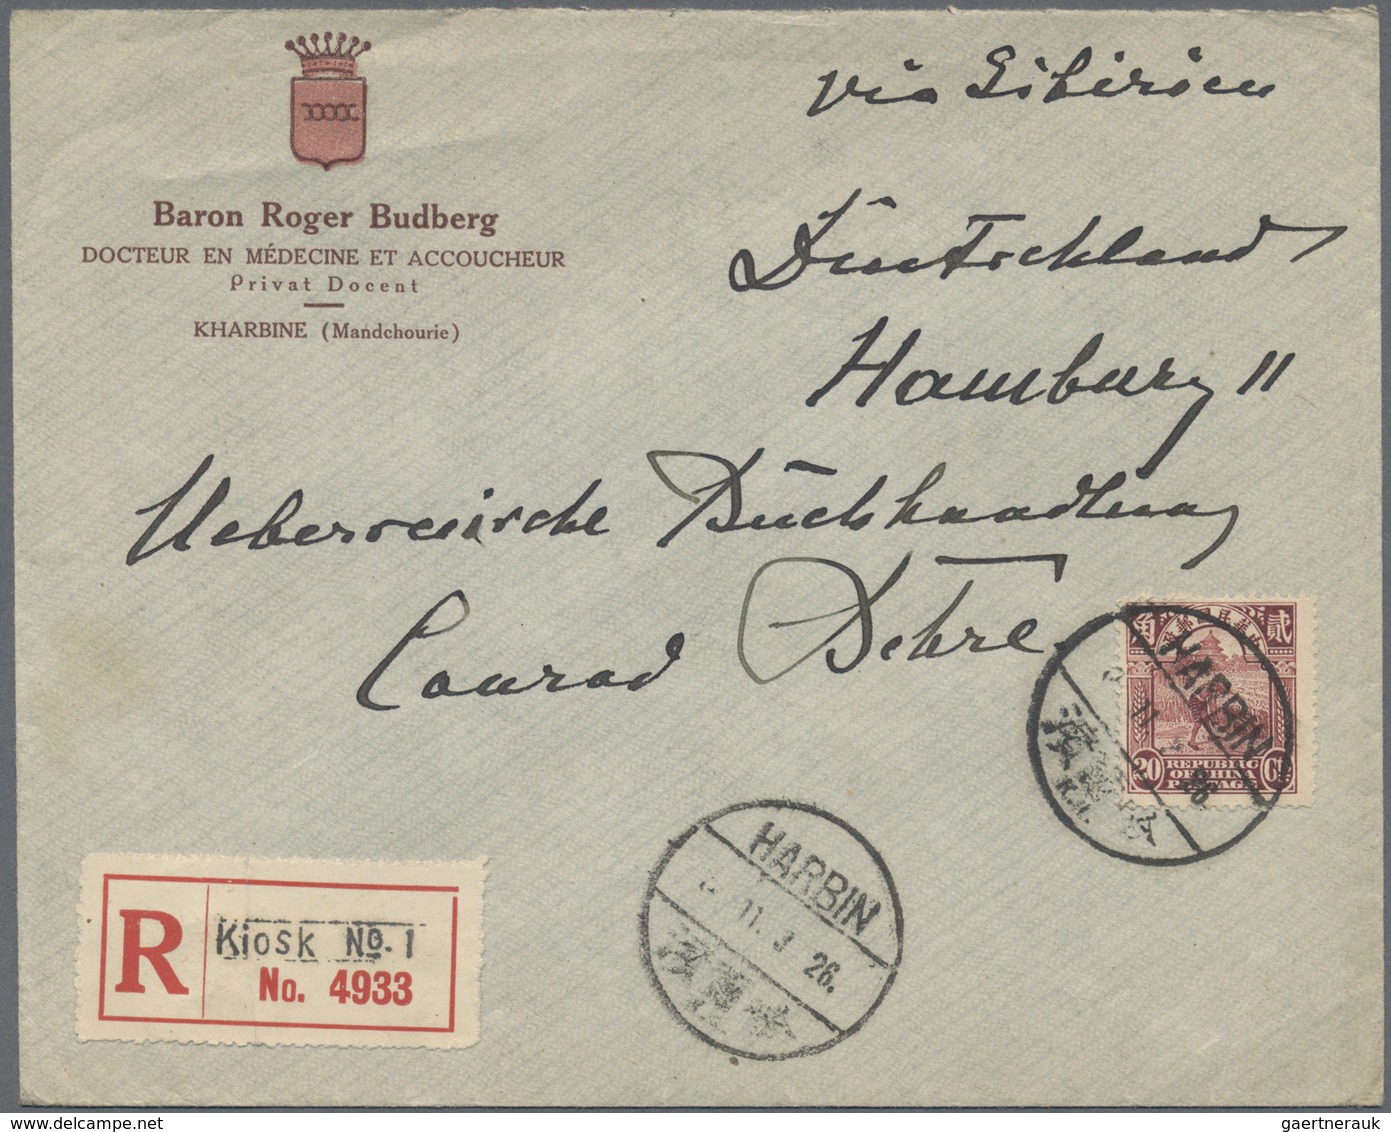 Baron Roger Budberg
DOCTEUR EN MÉDECINE ET ACCOUCHEUR
Privat Docent
KHARBINE (Mandchourie)
via Sibirien
Deutschland
Hamburg 11
Ueberseeische Buchhandlung
Conrad Behre.
貳 中華民國郵政 角
20 REPUBLIC OF CHINA POSTAGE Cts
HARBIN
11.
26.
K.1.
濱爾哈
HARBIN
11. 3 26.
濱爾哈
R
Kiosk No. 1
No. 4933
gaertnerauk